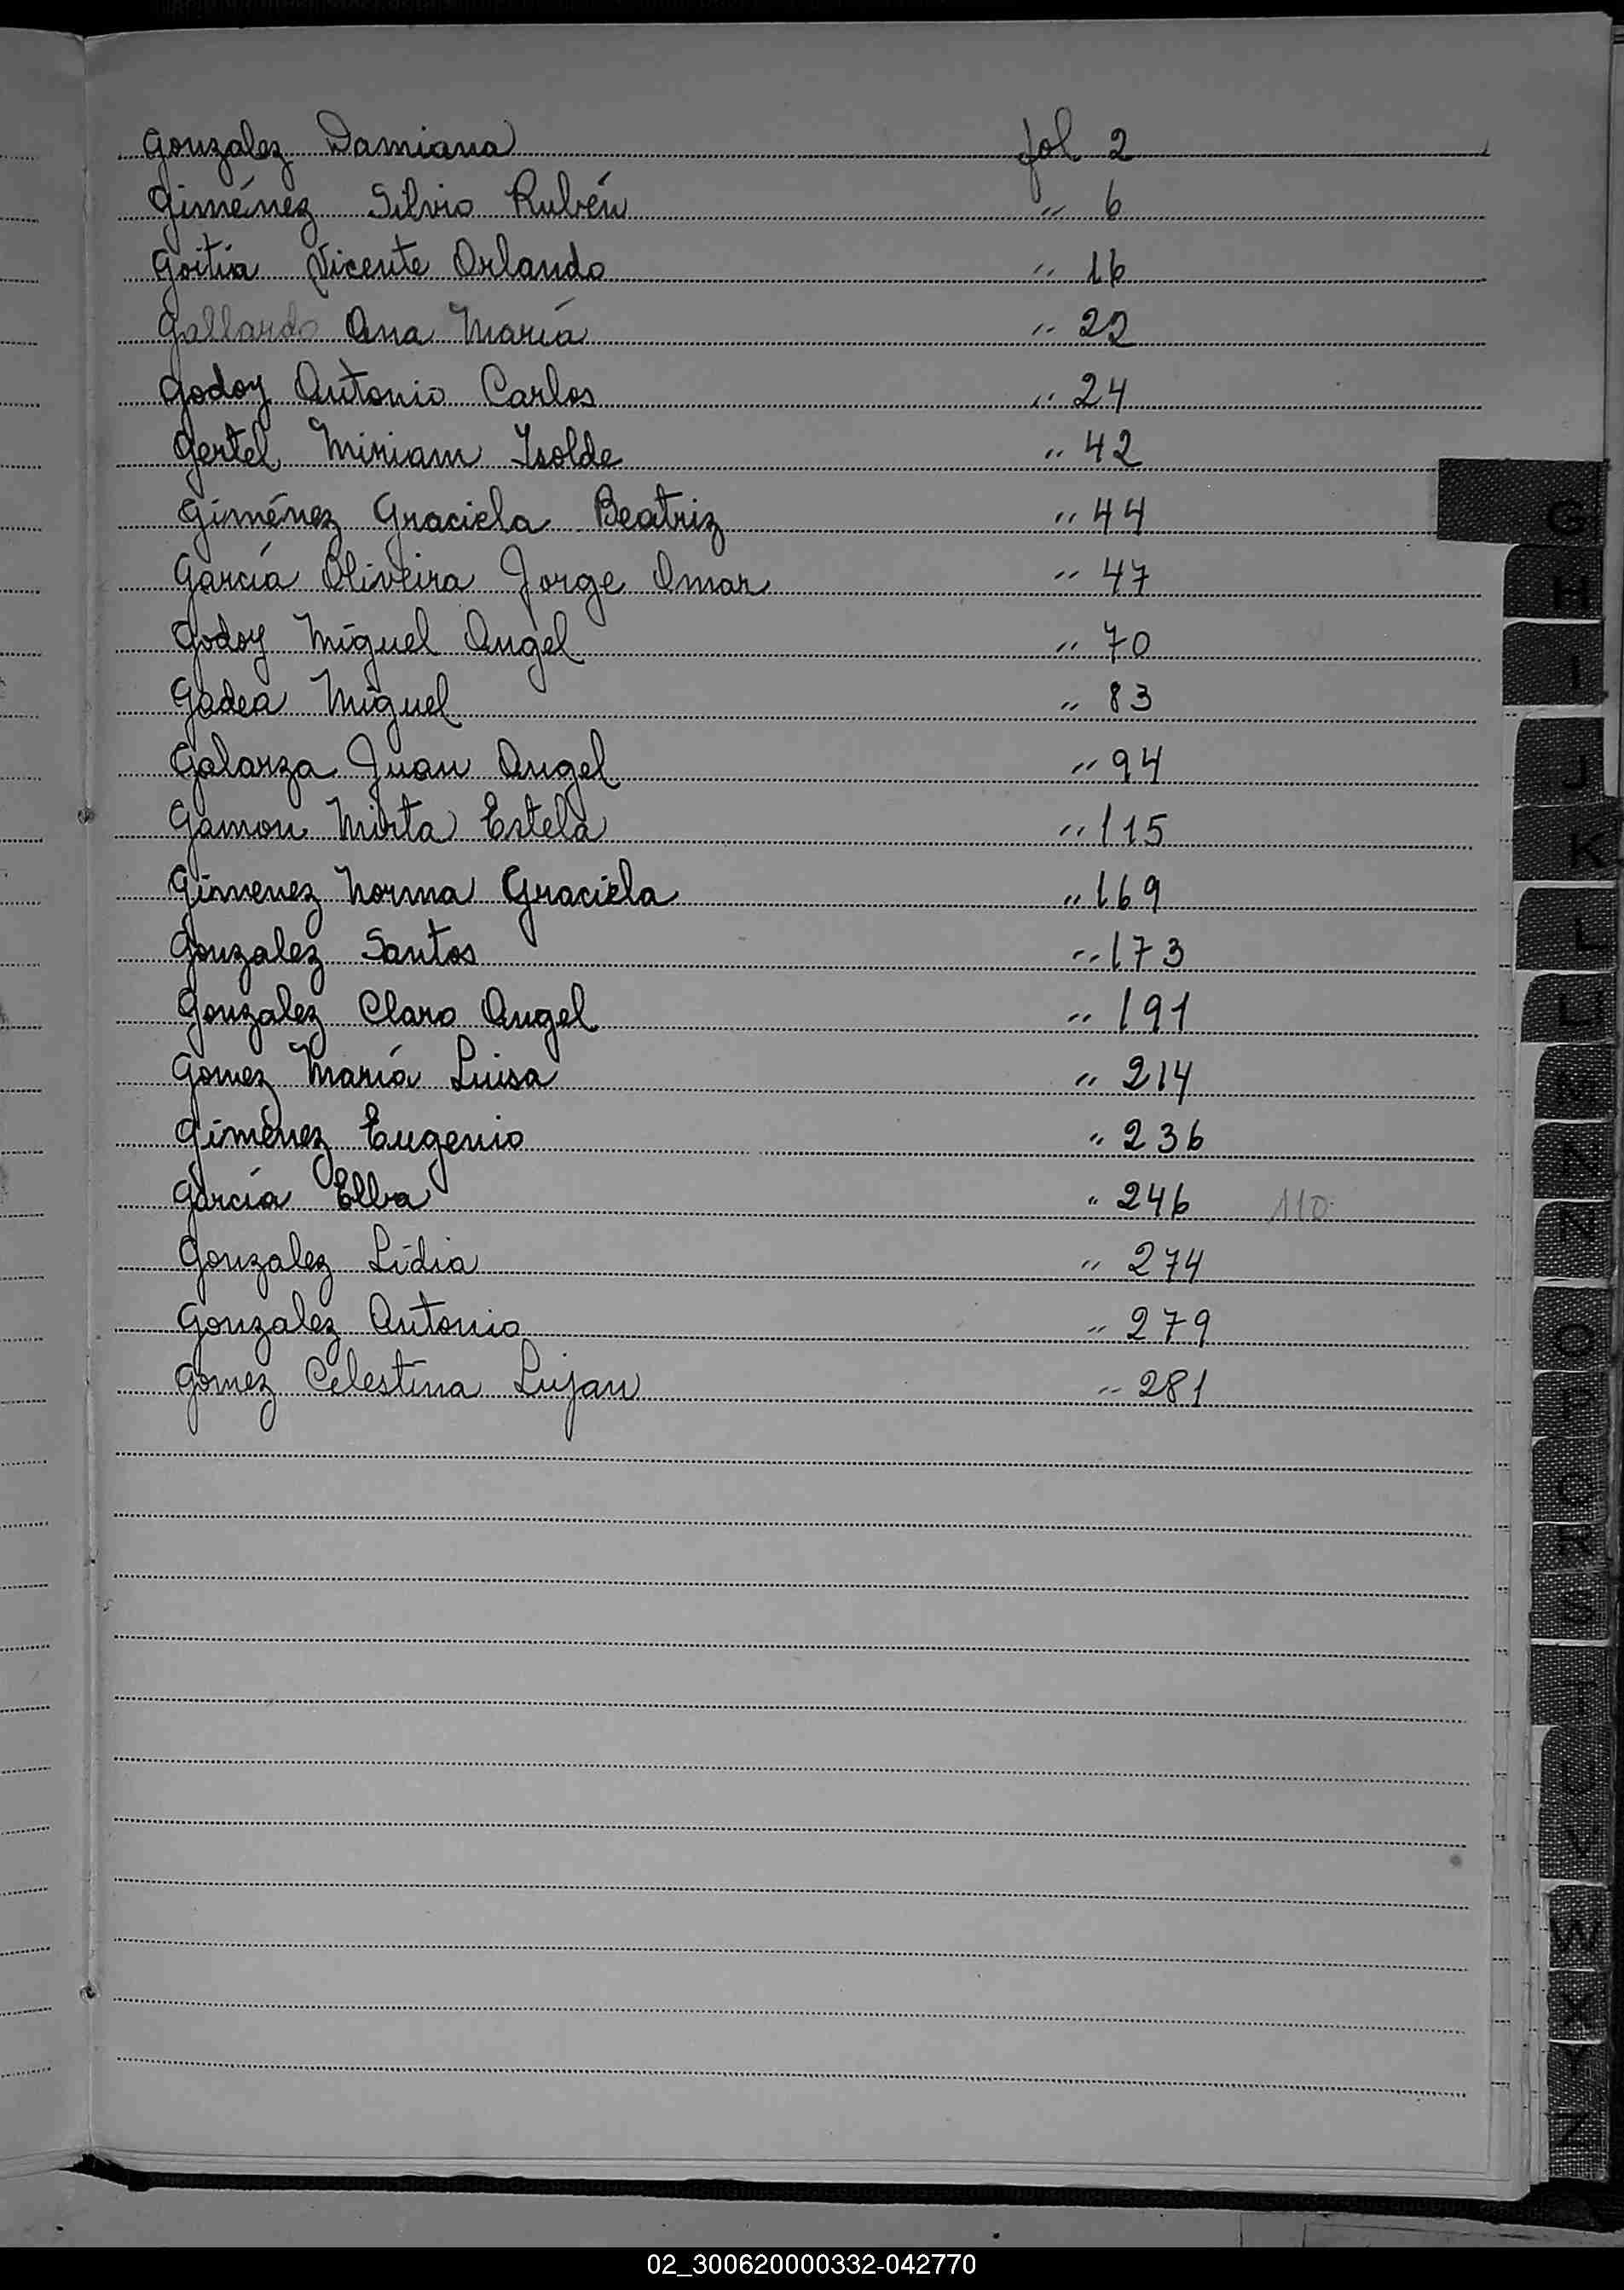 Gonzalez Damiana fol 2
Giménez Silvio Rubén " 6
Goitia Vicente Orlando " 16
Gallardo Ana María " 22
Godoy Antonio Carlos " 24
Gertel Miriam Isolde " 42
Giménez Graciela Beatriz " 44
García Oliveira Jorge Omar " 47
Godoy Miguel Angel " 70
Gadea Miguel " 83
Galarza Juan Angel " 94
Gamon Mirta Estela " 115
Gimenez Norma Graciela " 169
Gonzalez Santos " 173
Gonzalez Claro Angel " 191
Gomez María Luisa " 214
Giménez Eugenio " 236
García Elba " 246 110
Gonzalez Lidia " 274
Gonzalez Antonio " 279
Gomez Celestina Lujan " 281
G
H
I
J
K
L
LL
M
N
Ñ
O
P
Q
R
S
T
U
V
W
X
Y
Z
02_300620000332-042770